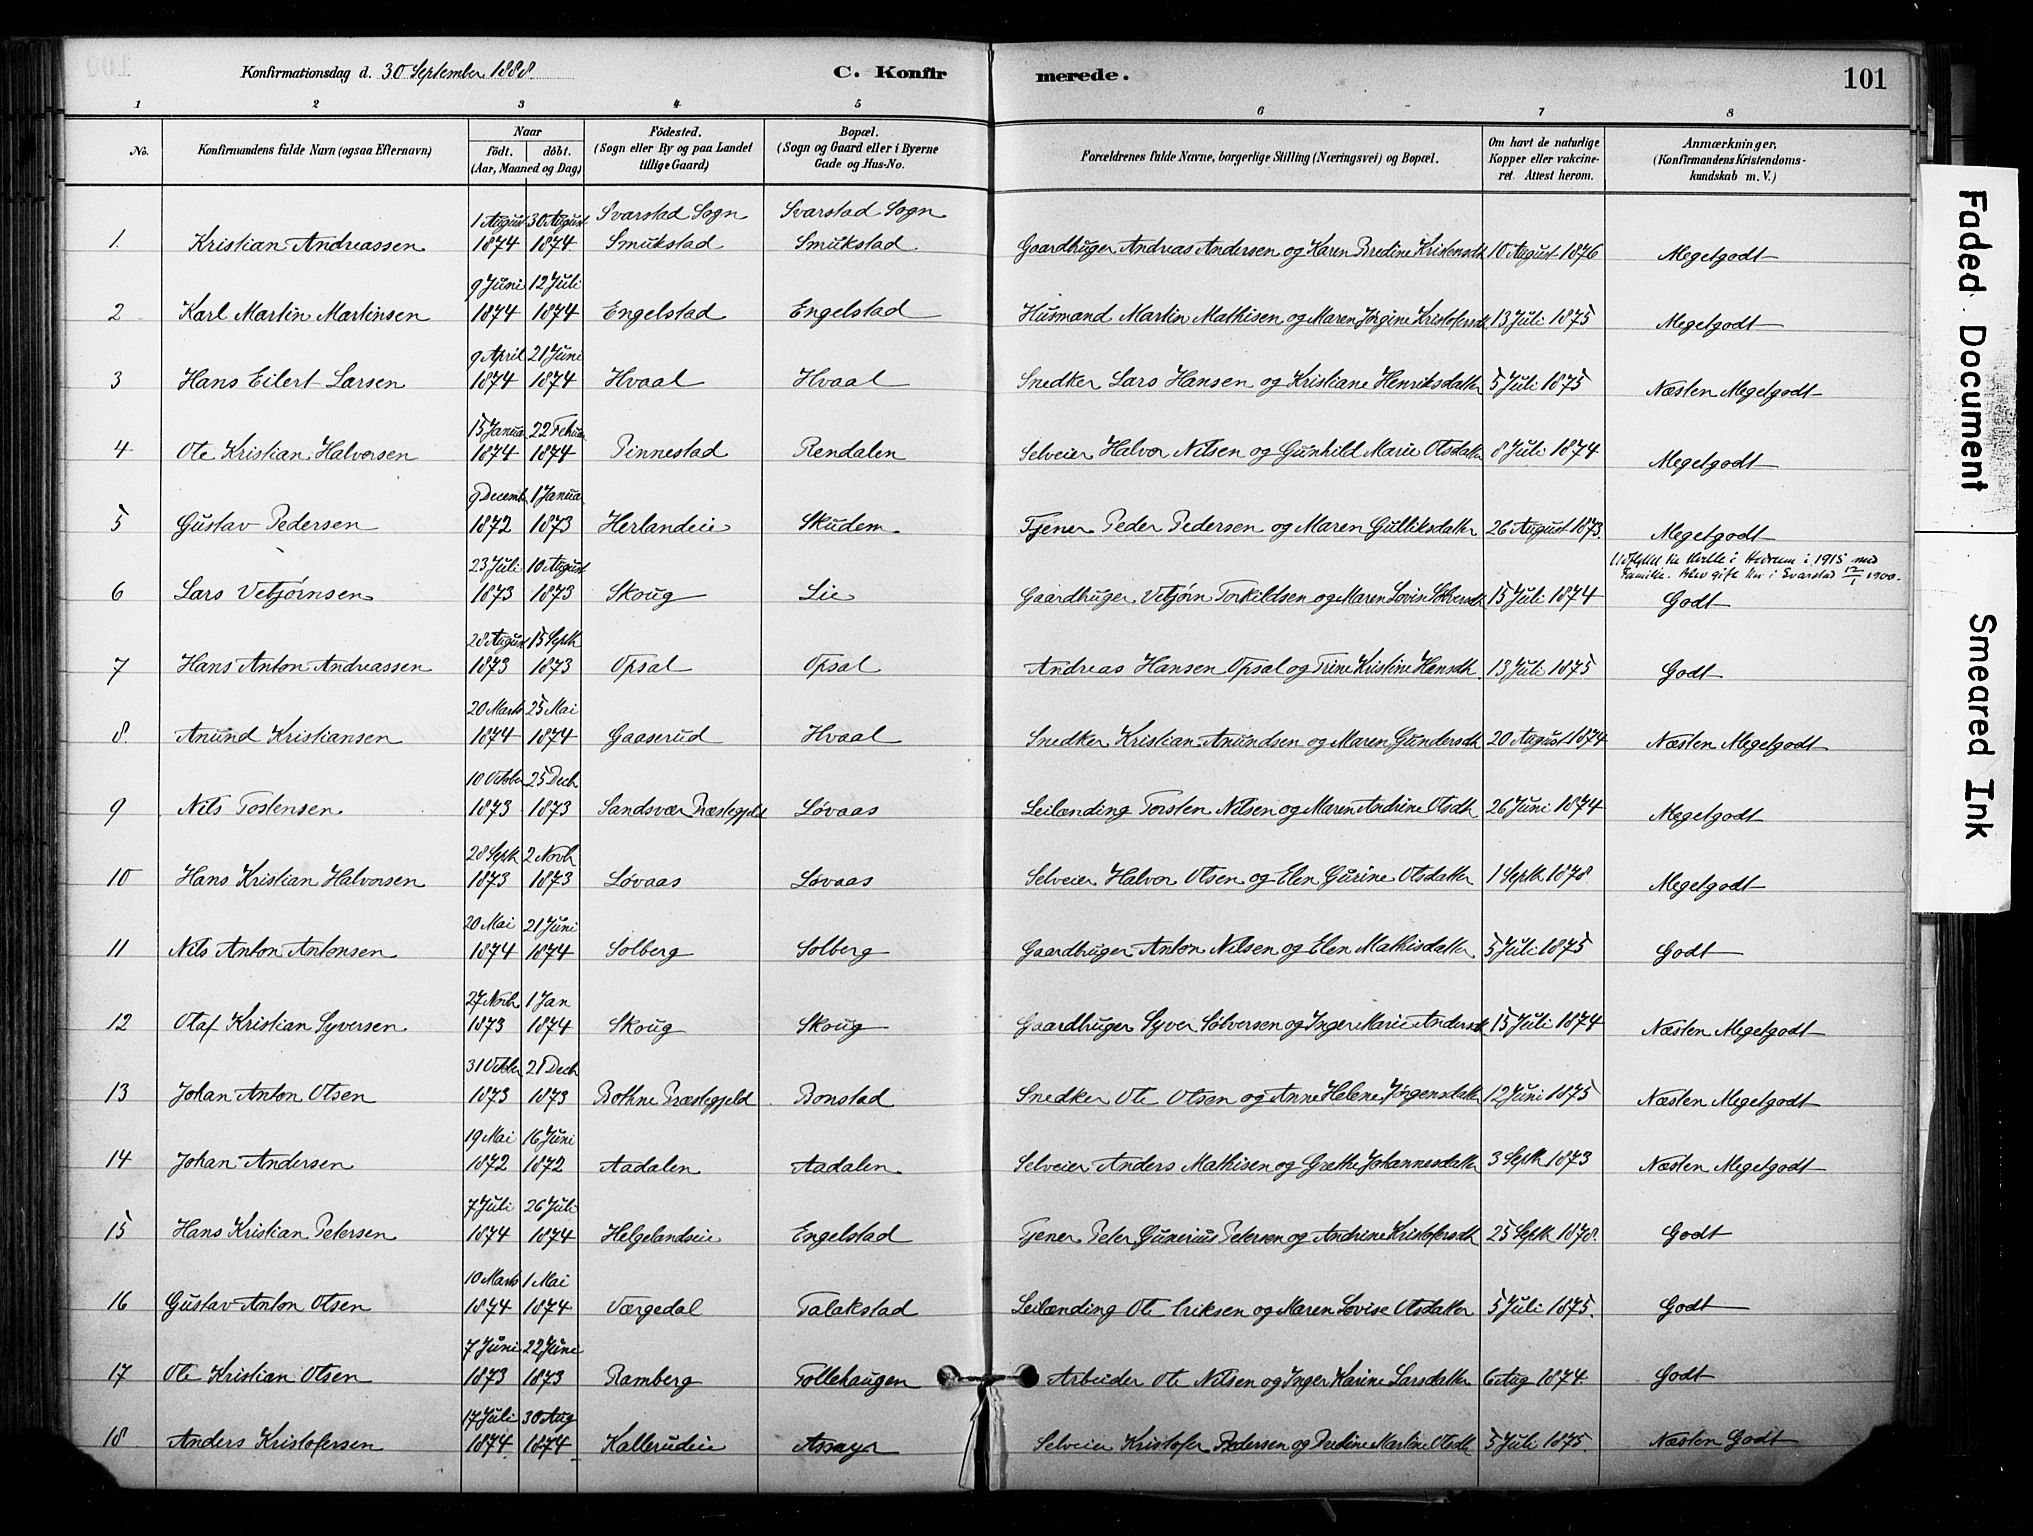 Konfirmationsdag d. 30 September 1888. C. Konfirmerede. 101
1 2 3 4 5 6 7 8
No. Konfirmandens fulde Navn (ogsaa Efternavn) Naar födt. döbt. (Aar, Maaned og Dag) Födested. (Sogn eller By og paa Landet tillige Gaard) Bopæl. (Sogn og Gaard eller i Byerne Gade og Hus-No. Forældrenes fulde Navne, borgerlige Stilling (Næringsvei) og Bopæl. Om havt de naturlige Kopper eller vakcineret. Attest herom. Anmærkninger, (Konfirmandens Kristendomskundskab m. V.)
1 August 30 August Svarstad Sogn Svarstad Sogn
1. Kristian Andreassen 1874 1874 Smukstad Smukstad Gaardbruger Andreas Andersen og Karen Bredine Kristensdt 10 August 1876 Megetgodt
9 Juni 12 Juli
2 Karl Martin Martinsen 1874 1874 Engelstad Engelstad Husmand Martin Mathisen og Maren Jørgine Kristofersdt 13 Juli 1875 Megetgodt
9 April 21 Juni
3 Hans Eilert Larsen 1874 1874 Hvaal Hvaal Snedker Lars Hansen og Kristiane Henriksdatter 5 Juli 1875 Næsten Megetgodt
15 Janua 22 Februa
4 Ole Kristian Halvorsen 1874 1874 Pinnestad Rendalen Selveier Halvor Nilsen og Gunhild Marie Olsdatter 8 Juli 1874 Megetgodt
9 Decemb 1 Janua
5 Gustav Pedersen 1872 1873 Herlandeie Skudem Tjener Peder Pedersen og Maren Gulliksdatter 26 August 1873. Megetgodt
23 Juli 10 August Udflyttet til i Hedrum i 1915 med
Familie. Blev gift i Svarstad 12/ 1900.
6 Lars Vebjørnsen 1873 1873 Skoug Lie Gaardbruger Vebjørn Torkildsen og Maren Lovise Sølversdt 15 Juli 1874 Godt
28 August 15 Septb
7 Hans Anton Andreassen 1873 1873 Opsal Opsal Andreas Hansen Opsal og Trine Kristine Hansdt 13 Juli 1875 Godt
20 Marts 25 Mai
8 Anund Kristiansen 1874 1874 Gaaserud Hvaal Snedker Kristian Anundsen og Maren Gundersdt 20 August 1874 Næsten Megetgodt
10 Octobr 25 Decb
9 Nils Tostensen 1873 1873 Sandsvær Præstegjeld Løvaas Leilænding Torsten Nilsen og Maren Andrine Olsdt 26 Juni 1874 Megetgodt
28 Septb 2 Novb
10 Hans Kristian Halvorsen 1873 1873 Løvaas Løvaas Selveier Halvor Olsen og Elen Gurine Olsdatter 1 Septb 1878 Megetgodt
20 Mai 21 Juni
11 Nils Anton Antonsen 1874 1874 Solberg Solberg Gaardbruger Anton Nilsen og Elen Mathisdatter 5 Juli 1875 Godt
27 Novb 1 Jan
12 Olaf Kristian Syversen 1873 1874 Skoug Skoug Gaardbruger Syver Sølversen og Inger Marie Andersdt 15 Juli 1874 Næsten Megetgodt
31 Octbr 21 Decb
13 Johan Anton Olsen 1873 1873 Bothne Præstegjeld Bonstad Snedker Ole Olsen og Anne Helene Jørgensdatter 12 Juni 1875 Næsten Megetgodt
19 Mai 16 Juni
14 Johan Andersen 1872 1872 Aadalen Aadalen Selveier Anders Mathisen og Grethe Johannesdatter 3 Septb 1873 Næsten Megetgodt
7 Juli 26 Juli
15 Hans Kristian Petersen 1874 1874 Helgelandseie Engelstad Tjener Peter Gunerius Petersen og Andrine Kristofersdt 25 Septb 1878. Godt
10 Marts 1 Mai
16 Gustav Anton Olsen 1874 1874 Værgedal Talakstad Leilænding Ole Eriksen og Maren Lovise Olsdatter 5 Juli 1875. Godt
7 Juni 22 Juni
17 Ole Kristian Olsen 1873 1873 Ramberg Tollehaugen Arbeider Ole Nilsen og Inger Karine Larsdatter 6 Aug 1874 Godt
17 Juli 30 Aug
18 Anders Kristofersen 1874 1874 Kallerudeie Selveier Kristofer Pedersen og Martine Olsdt 5 Juli 1875. Næsten Godt
Faded Document
Smeared Ink